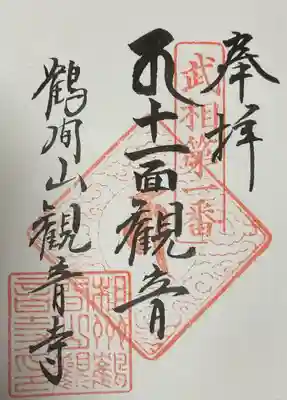 奉拝
武相第一番
十一面観音
鶴間山観音寺